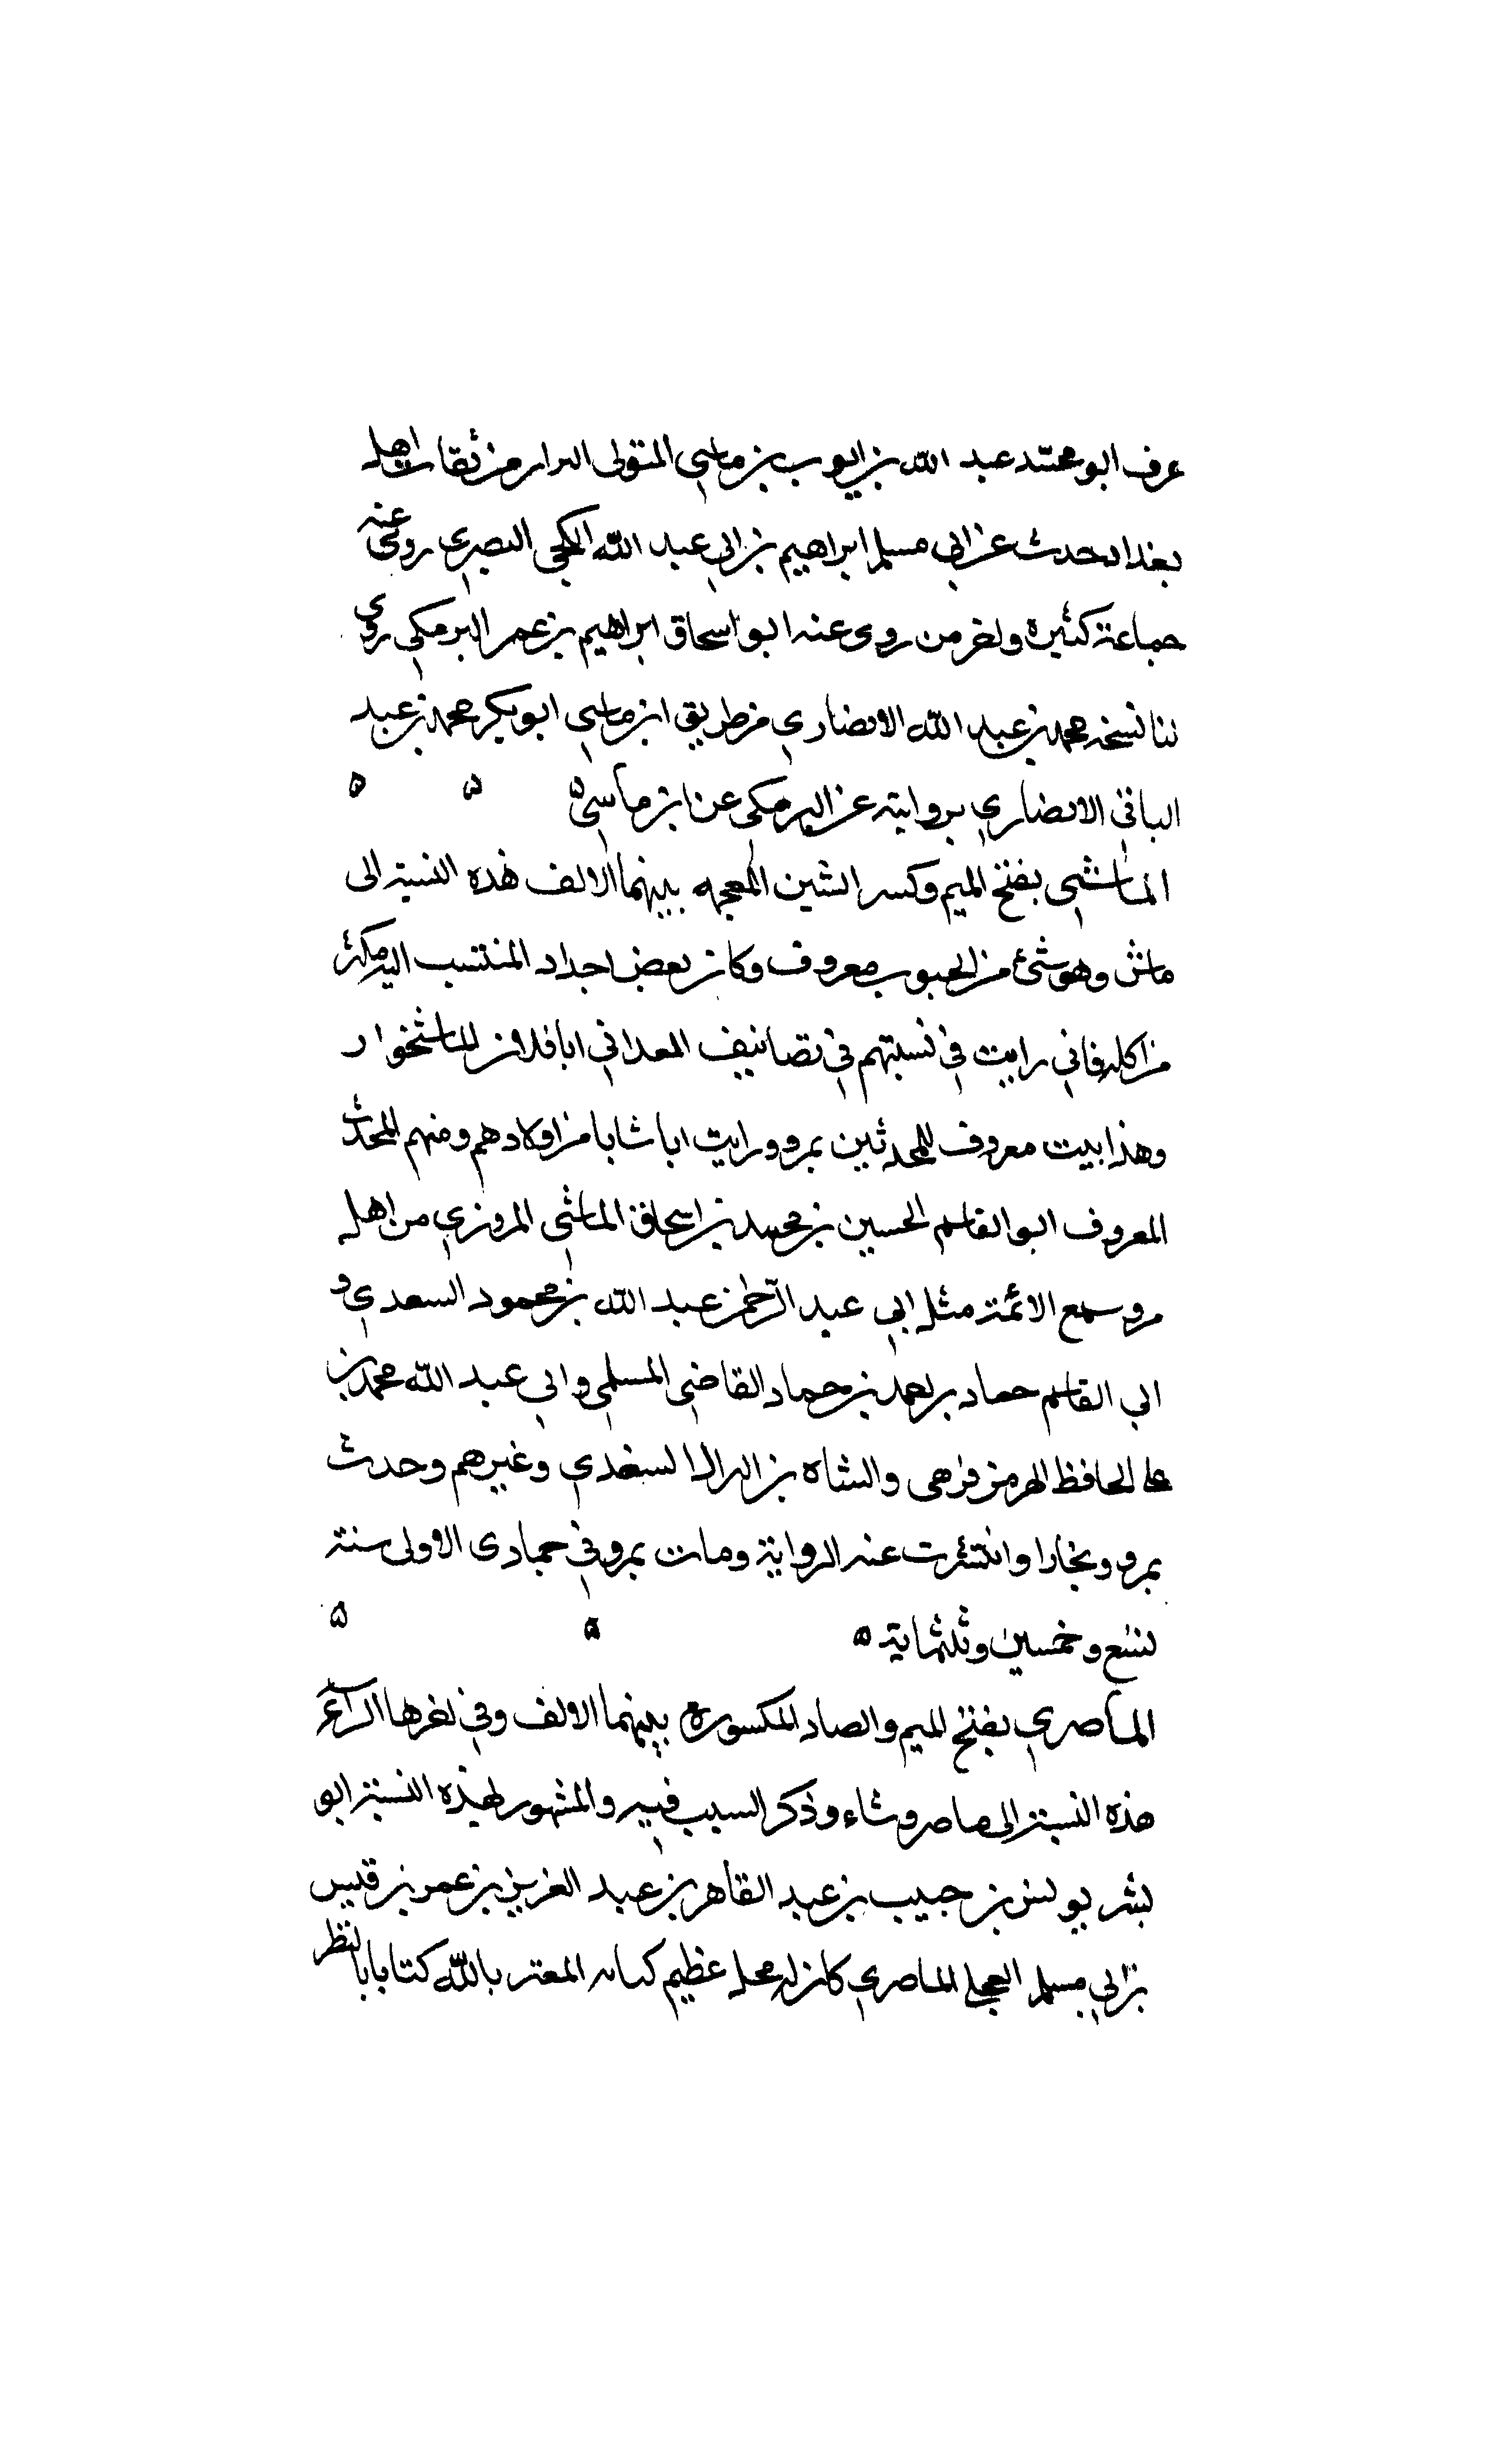 عرف ابو محمد عبد الله بن ايوب بن ماسي المتولى البزار من ثقات اهل
بغداد حدث عن ابي مسلم ابراهيم بن ابي عبد الله الكجي البصري روى عنه
جماعة كثيرة واخر من روى عنه ابو اسحاق ابراهيم بن عمر البرمكي روى
لنا نسخة محمد بن عبد الله الانصاري من طريق ابن ماسي ابو بكر محمد بن عبد
الباقي الانصاري بروايته عن البرمكي عن ابن ماسي ه ه ه
الماشي بفتح الميم وكسر الشين المعجمه بينهما الالف هذه النسبة الى
ماش وهو شئ من الحبوب معروف وكان بعض اجداد المنتسب اليه مكثر
من اكله فاني رايت في نسبتهم في تصانيف المعداني ابا فلان الماشخوار
وهذا بيت معروف للمحدثين بمرو ورايت ابا شابا من اولادهم ومنهم المحدث
المعروف ابو القاسم الحسين بن محمد بن اسحاق الماشي المروزي من اهل
مرو سمع الائمة مثل ابي عبد الرحمن عبد الله بن محمود السعدي و
ابي القاسم حماد بن احمد بن حماد القاضي المسلمي وابي عبد الله محمد بن
علي الحافظ الهرمزفرهي والشاه بن النزال السغدي وغيرهم وحدث
بمرو وبخارا وانتشرت عنه الرواية ومات بمرو في جمادى الاولى سنة
تسع وخمسين وثلثماية ه ه ه
الماصري بفتح الميم والصاد المكسورة بينهما الالف وفي اخرها الراء
هذه النسبة الى ماصر وشاء وذكر السبب فيه والمشهور لهذه النسبة ابو
بشر يونس بن حبيب بن عبد القاهر بن عبد العزيز بن عمر بن قيس
بن ابي مسلم العجلي الماصري كان له محل عظيم كتب المعتز بالله كتابا بالنظر